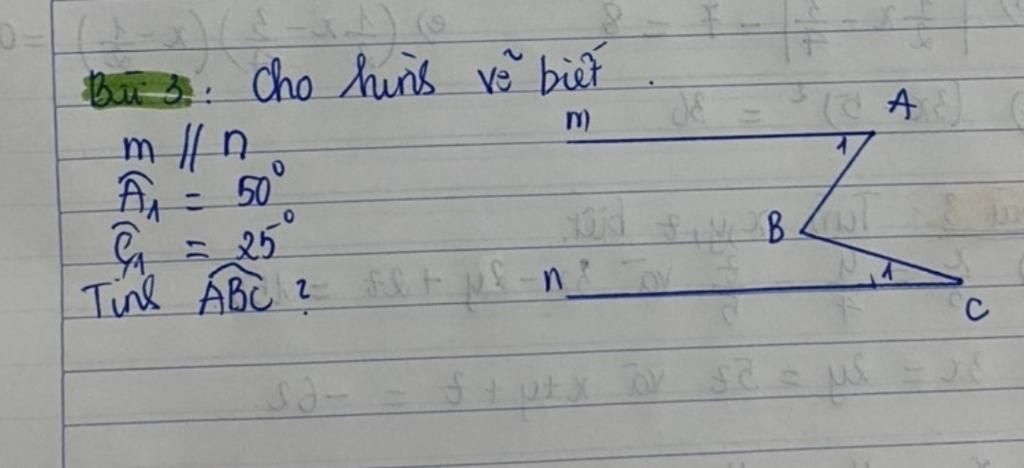 Bài 3: Cho hình vẽ biết.
m // n
Â₁ = 50°
Ĉ₁ = 25°
Tính ABC ?
m
A
1
B
n
1
C